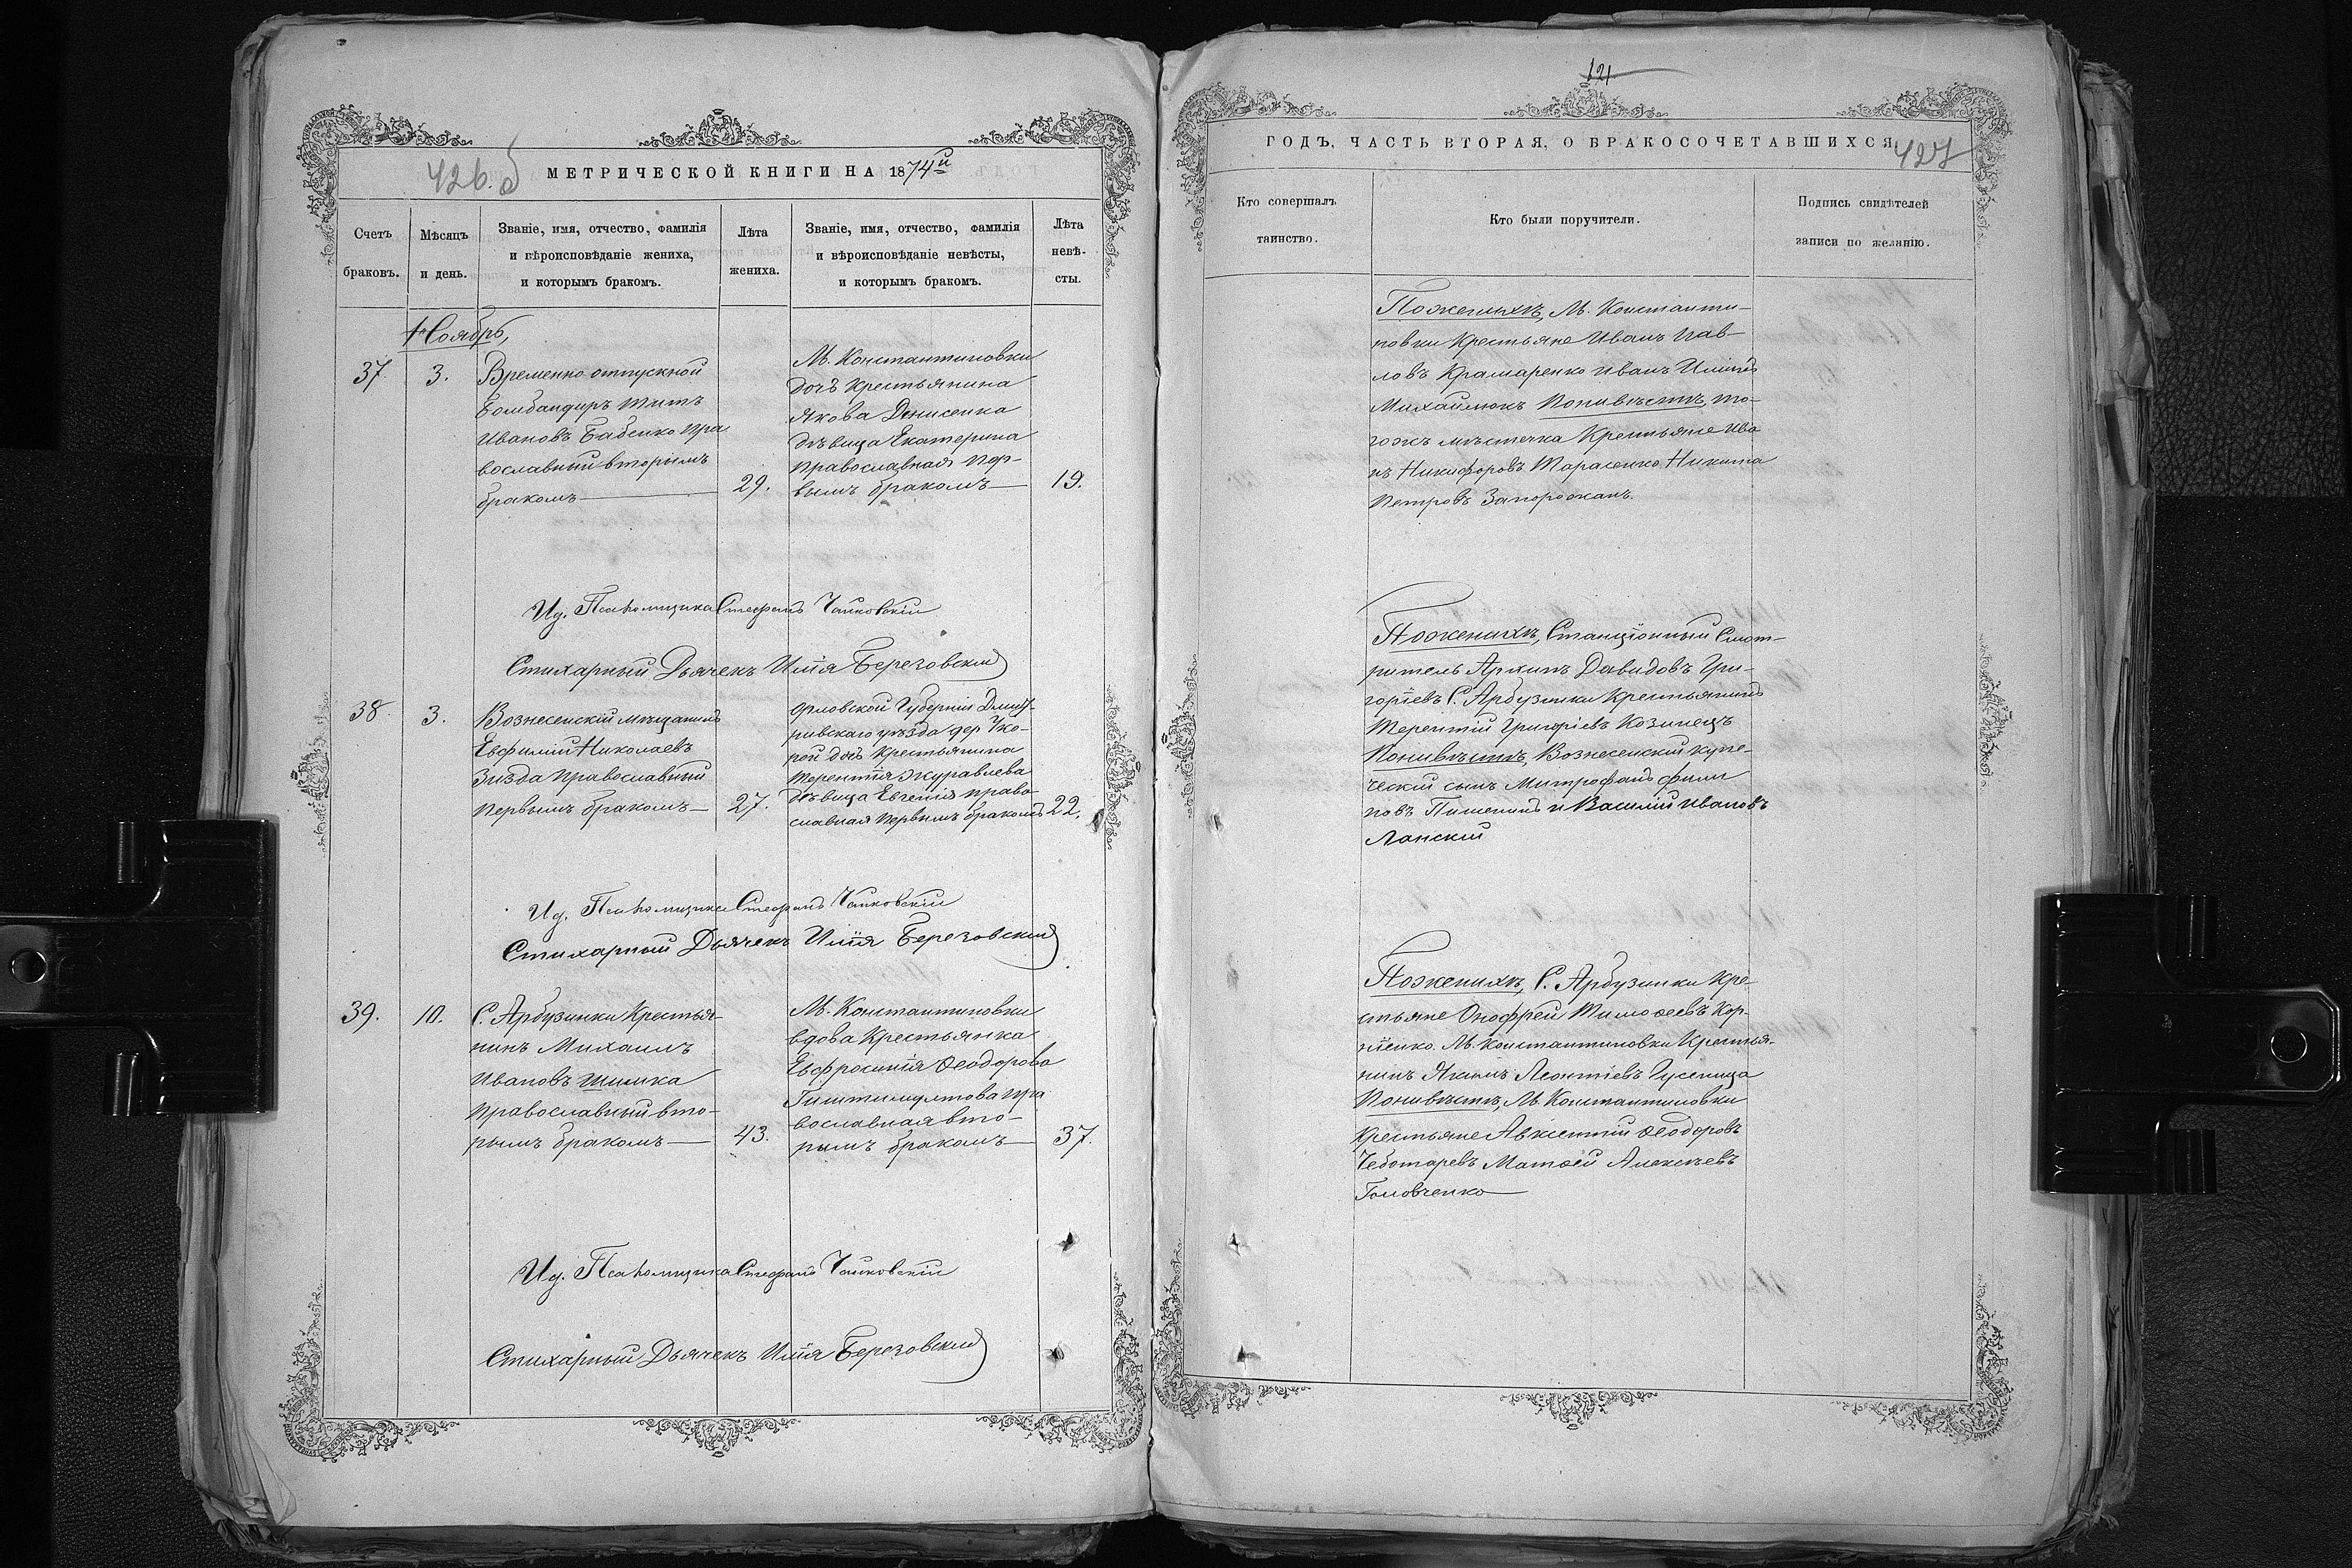 426 б
МЕТРИЧЕСКОЙ КНИГИ НА 1874й
Счетъ браковъ.
Мѣсяцъ и день.
Званіе, имя, отчество, фамилія
и вѣроисповѣданіе жениха,
и которымъ бракомъ.
Лѣта жениха.
Званіе, имя, отчество, фамилія
и вѣроисповѣданіе невѣсты,
и которымъ бракомъ.
Лѣта невѣ-
сты.
Ноябрь,
37.
3.
Временно отпускной
Бомбандиръ Титъ
Ивановъ Бабенко пра
вославный вторымъ
бракомъ
29.
М. Константиновки
дочь крестьянина
Якова Денисенка
дѣвица Екатерина
православная пер-
вымъ бракомъ
19.
Ид. Псаломщика Стефанъ Чайковскій
Стихарный Дьячекъ Илія Березовскій
38
3.
Вознесенскій мѣщанинъ
Евфимій Николаевъ
Зизда православный
первымъ бракомъ
27.
Орловской Губерніи Дмит-
ривскаго уѣзда дер.
рой дочь крестьянина
Терентія Журавлева
дѣвица Евгенія право
славная первымъ бракомъ
22.
Ид. Псаломщика Стефанъ Чайковскій
Стихарный Дьячекъ Илія Березовскій
39.
10.
С. Арбузинки Крестья-
нинъ Михаилъ
Ивановъ Шилика
православный вто-
рымъ бракомъ
43.
М. Константиновки
вдова Крестьянка
Евфросинія Ѳеодорова
пра
вославная вто-
рымъ бракомъ
37.
Ид. Псаломщика Стефанъ Чайковскій
Стихарный Дьячекъ Илія Березовскій
121
ГОДЪ, ЧАСТЬ ВТОРАЯ, О БРАКОСОЧЕТАВШИХСЯ
427
Кто совершалъ
таинство.
Кто были поручители.
Подпись свидѣтелей
записи по желанію.
По женихѣ, М. Константи-
новки Крестьяне Иванъ Пав-
ловъ Крамаренко Иванъ Иліинъ
Михайлюкъ по невѣстѣ, то-
гожъ мѣстечка Крестьяне Ива
нъ Никифоровъ Тарасенко Никита
Петровъ Запорожанъ.
По женихѣ, Станціонный Смот-
ритель Архипъ Давидовъ Гри-
горіевъ С. Арбузинки Крестьянинъ
Терентій Григоріевъ Козинецъ
По невѣстѣ, Вознесенскій купе-
ческій сынъ Митрофанъ Филип
повъ Пишенинъ и Василій Ивановъ
Ланскій
По женихѣ, С. Арбузинки Кре-
стьяне Онофрей Тимоѳеевъ Кор-
ніенко. М. Константиновки Крестья-
нинъ Якимъ Леонтіевъ Гусеница
По невѣстѣ, М. Константиновки
Крестьяне Авксентій Ѳеодоровъ
Чеботаревъ Матѳей Алексѣевъ
Головченко